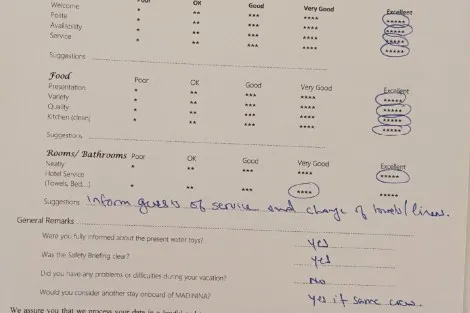 Poor OK Good Very Good Excellent
Welcome * ** *** **** *****
Polite * ** *** **** *****
Availability * ** *** **** *****
Service * ** *** **** *****
Suggestions
Food Poor OK Good Very Good Excellent
Presentation * ** *** **** *****
Variety * ** *** **** *****
Quality * ** *** **** *****
Kitchen (clean) * ** *** **** *****
Suggestions
Rooms/ Bathrooms Poor OK Good Very Good Excellent
Neatly * ** *** **** *****
Hotel Service
(Towels, Bed...) * ** *** **** *****
Suggestions Inform guests of service and change of towels/linens.
General Remarks
Were you fully informed about the present water toys? Yes
Was the Safety Briefing clear? Yes
Did you have any problems or difficulties during your vacation? No
Would you consider another stay onboard of MADININA? Yes if same crew.
We assure you that we process your data in a